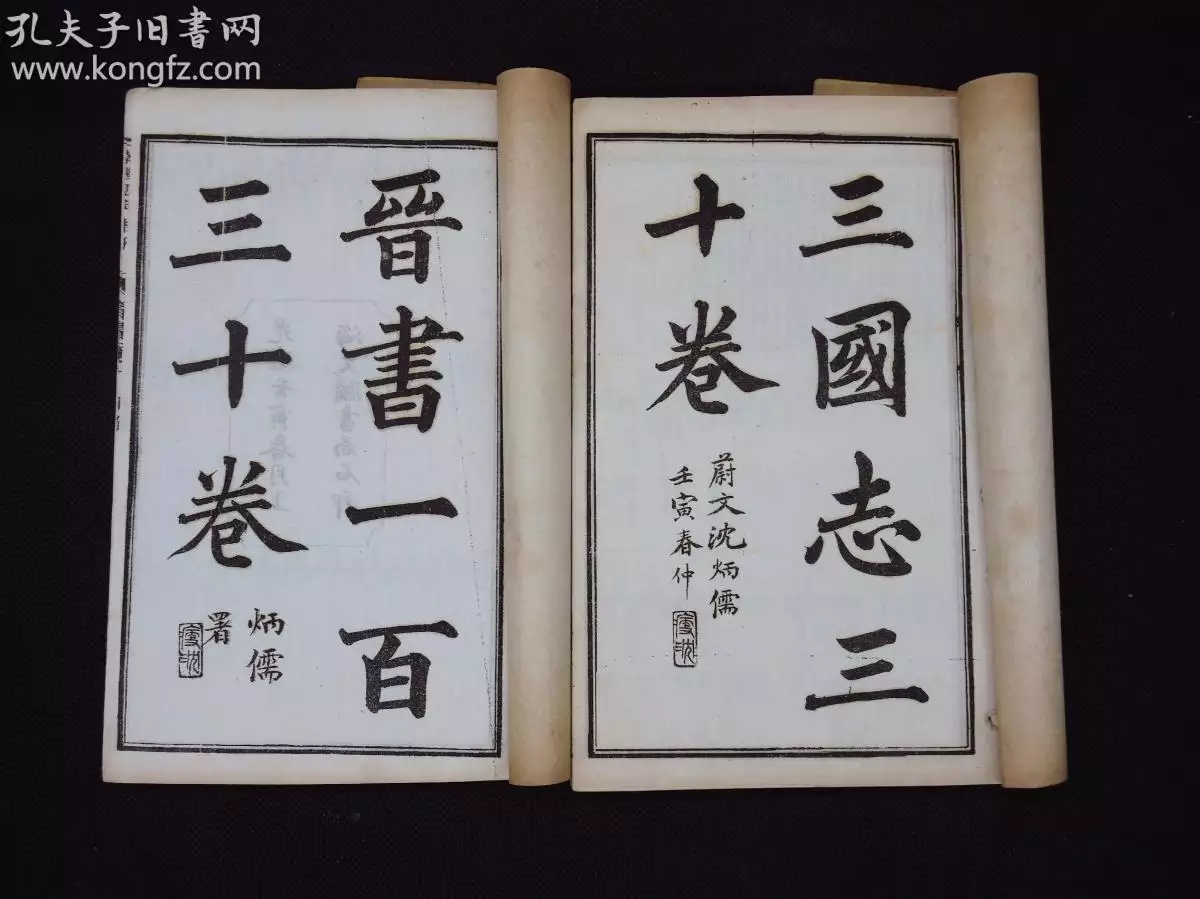 孔夫子旧書网
www.kongfz.com
三國志三
十卷
蔚文沈炳儒
壬寅春仲
晉書一百
三十卷
炳儒
署